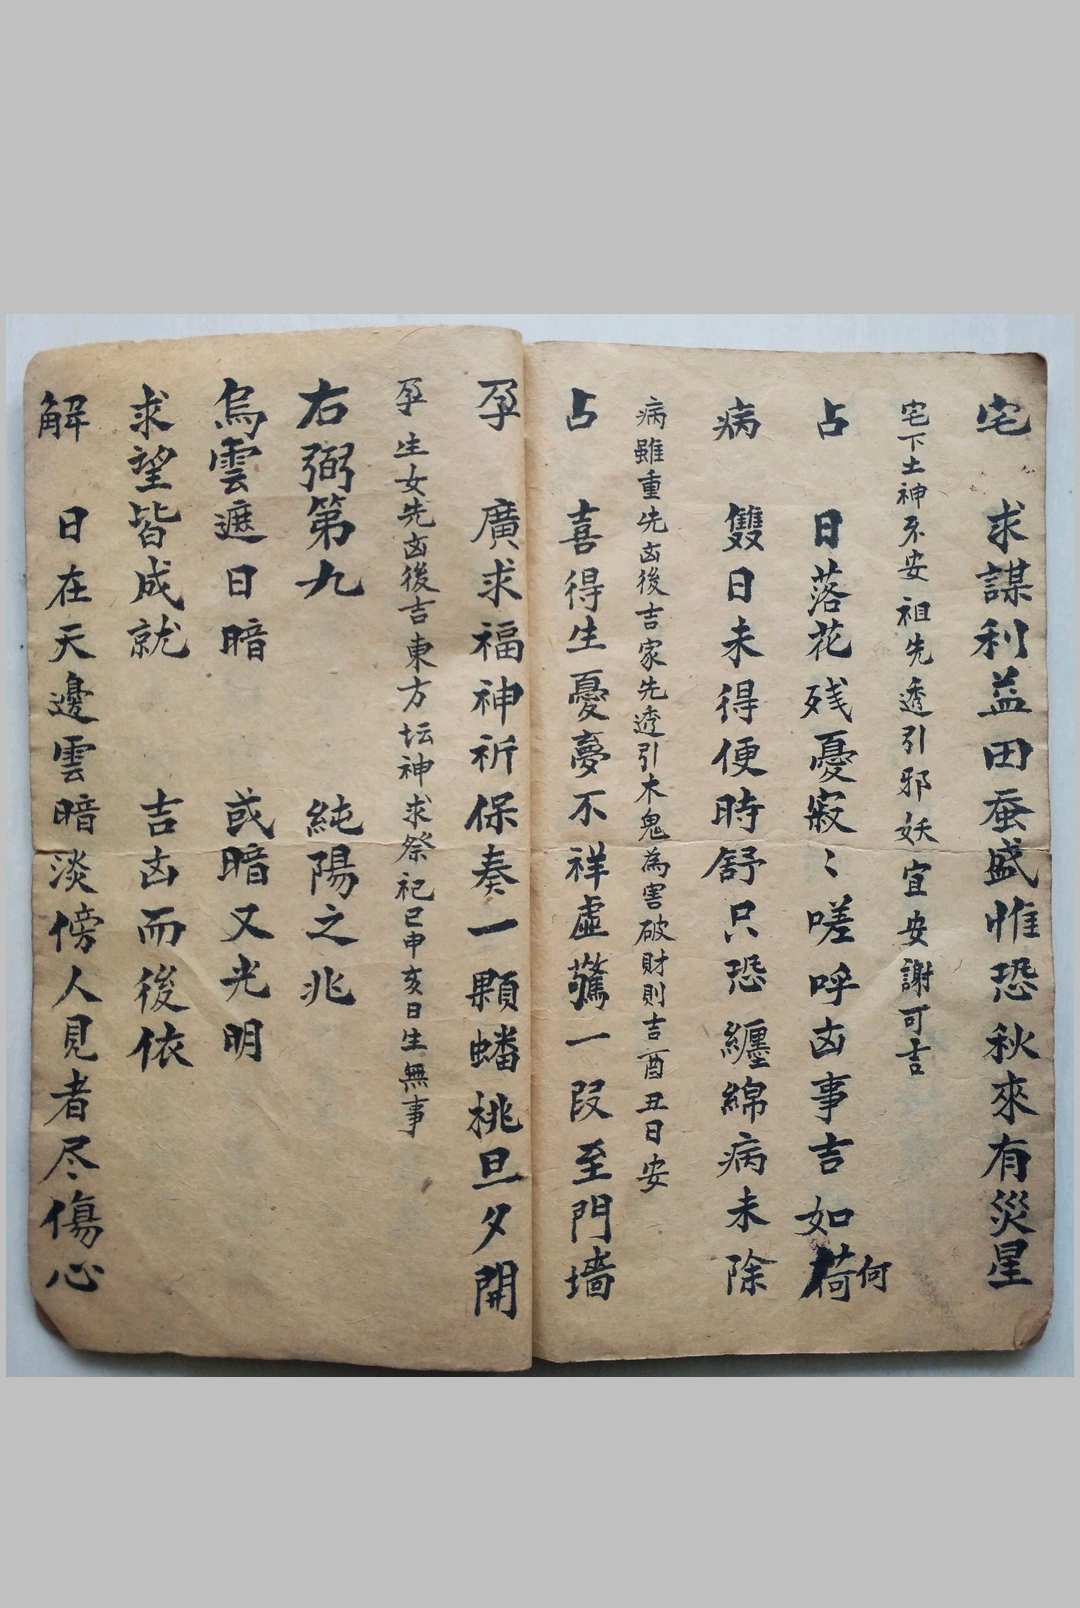 宅 求謀利益田蚕盛惟恐秋來有災星
宅下土神不安祖先透引邪妖宜安謝可吉
占 日落花残憂寂〻嗟呼凶事吉如荷何
病 雙日未得便時舒只恐纏綿病未除
病雖重先凶後吉家先透引木鬼為害破財則吉酉丑日安
占 喜得生憂夢不祥虛驚一段至門墻
孕 廣求福神祈保奏一顆蟠桃旦夕開
孕生女先凶後吉東方坛神求祭祀巳申亥日生無事
右弼第九 純陽之兆
烏雲遮日暗 或暗又光明
求望皆成就 吉凶而後依
解 日在天邊雲暗淡傍人見者尽傷心